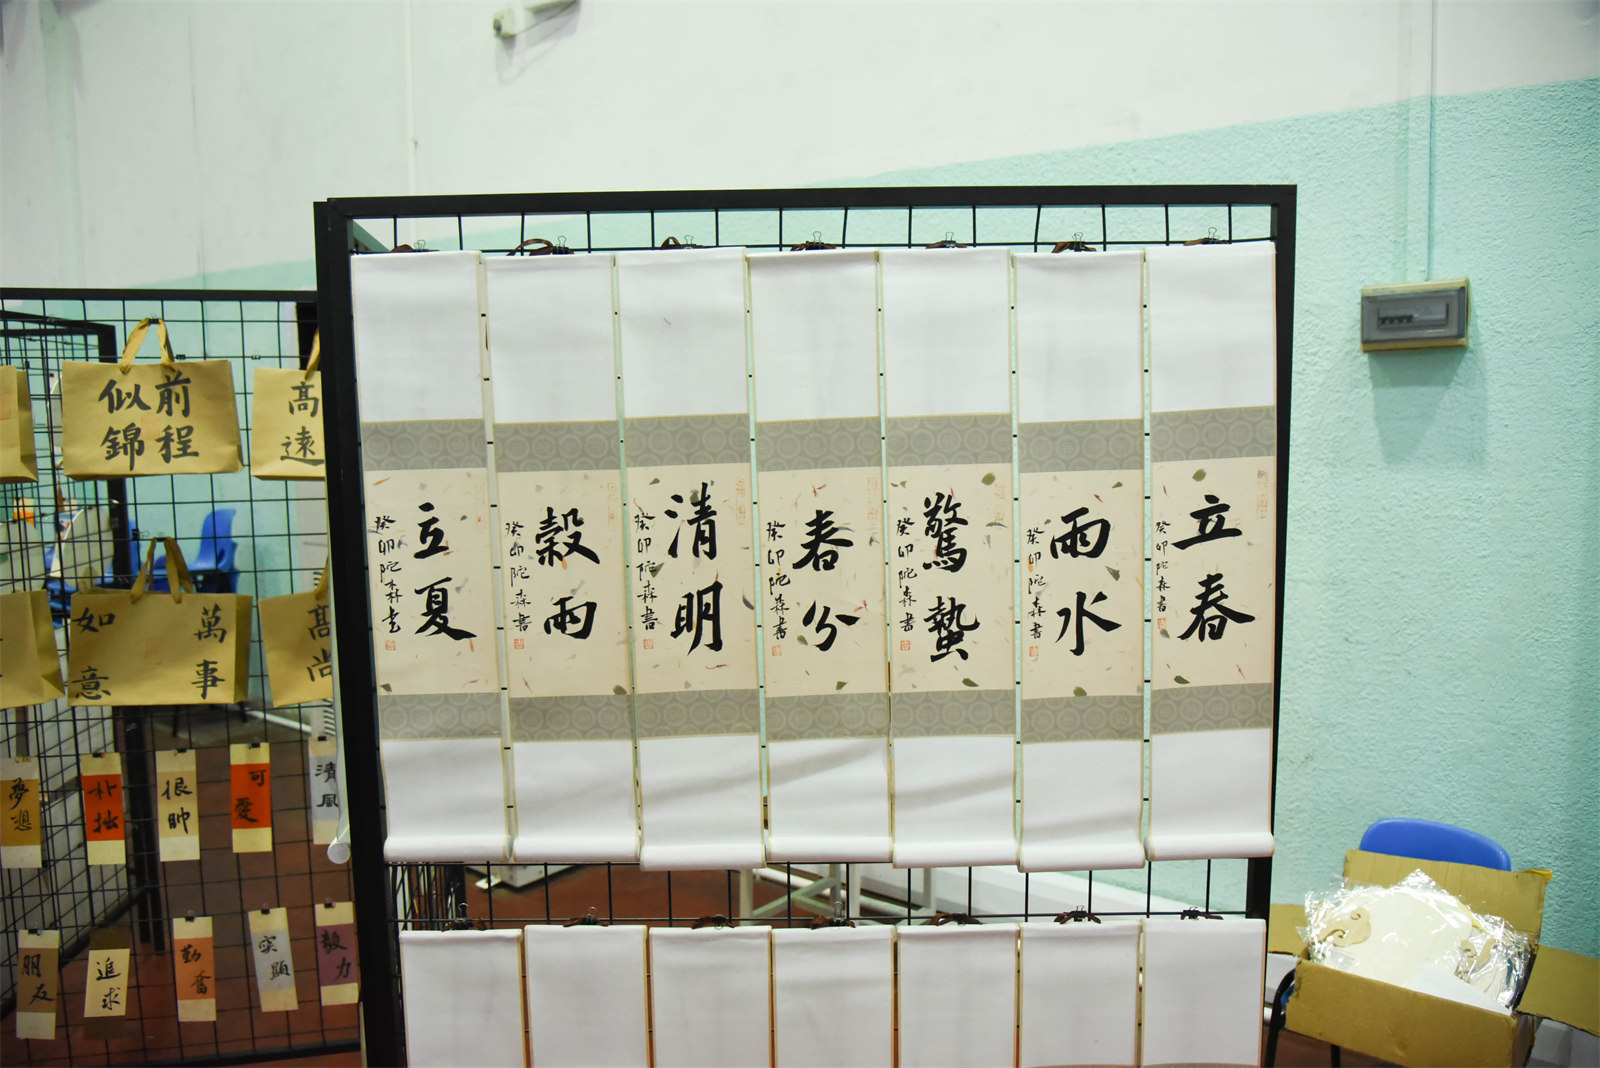 立春
癸卯陀森書
雨水
癸卯陀森書
驚蟄
癸卯陀森書
春分
癸卯陀森書
清明
癸卯陀森書
穀雨
癸卯陀森書
立夏
癸卯陀森書
前程
似錦
高
遠
萬事
如意
高
尚
夢想
朴拙
很帥
可愛
清風
朋友
追求
勤奮
突顯
毅力